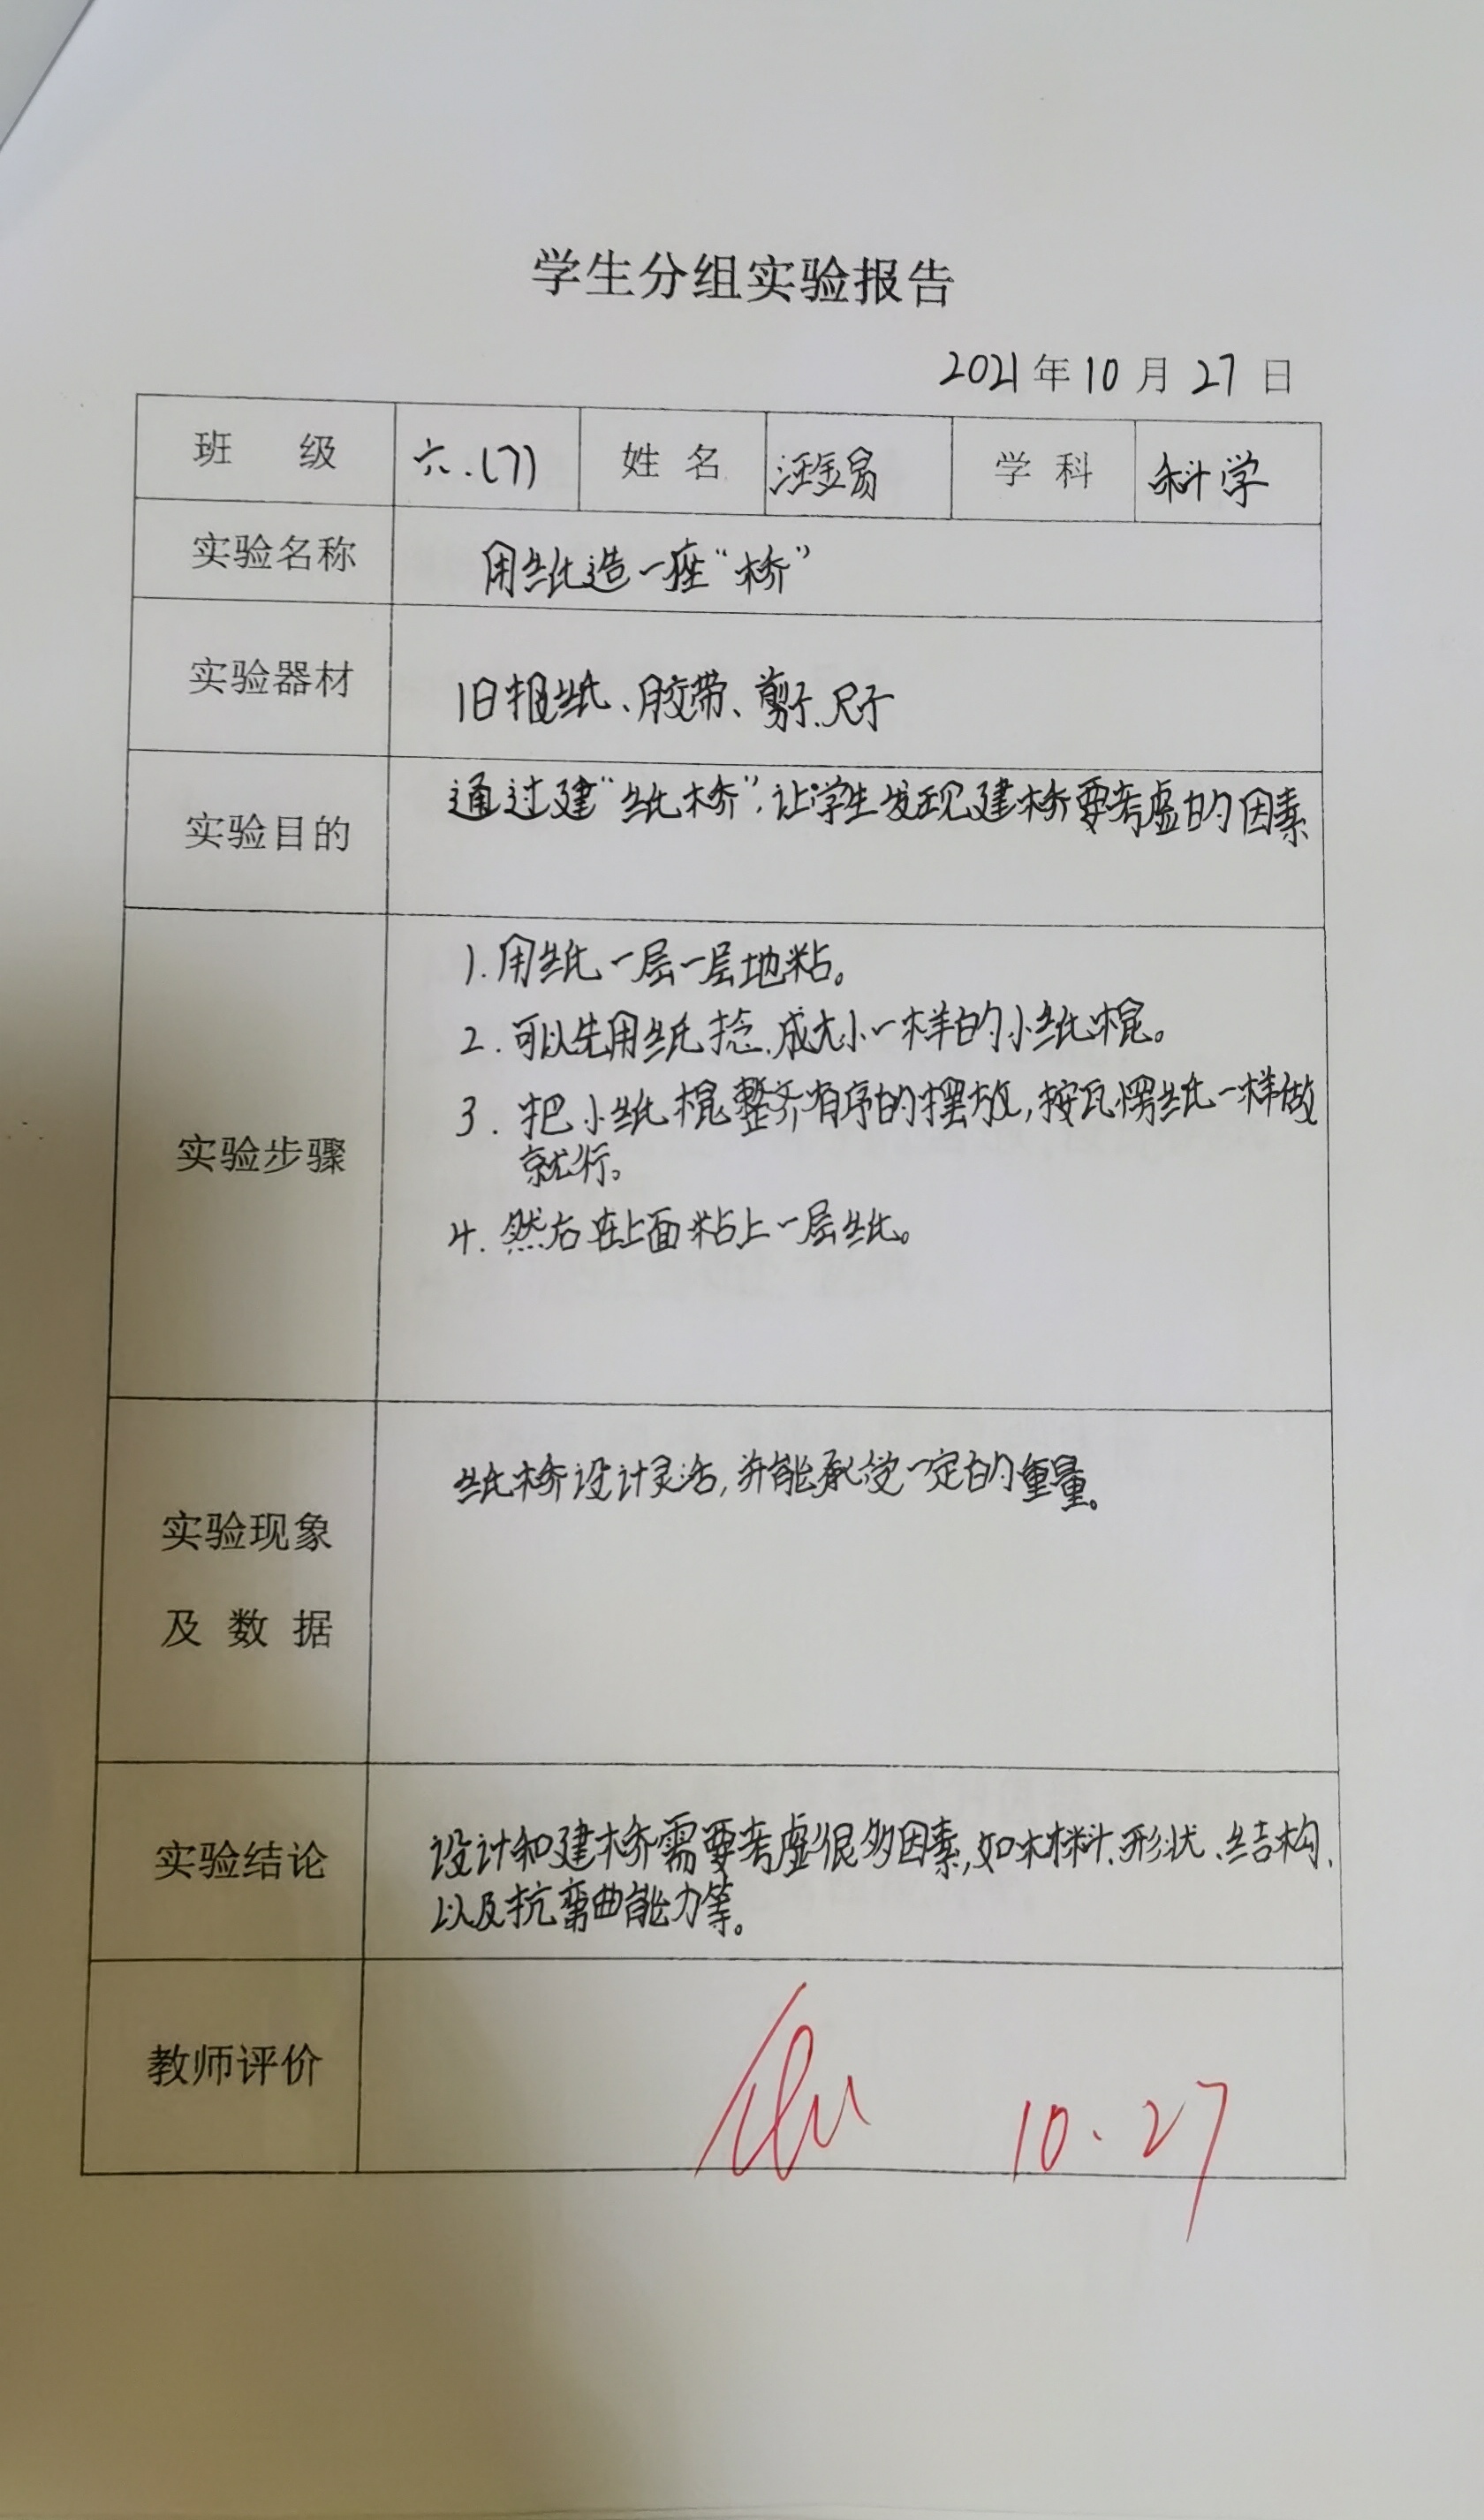 学生分组实验报告
2021年10月27日
班 级 六.(7) 姓 名 汪金易 学 科 科学
实验名称 用纸造一座“桥”
实验器材 旧报纸、胶带、剪子、尺子
实验目的 通过建“纸桥”，让学生发现建桥要考虑的因素
实验步骤
1. 用纸一层一层地粘。
2. 可以先用纸捻成大小一样的小纸棍。
3. 把小纸棍整齐有序的摆放，按瓦楞纸一样做
就行。
4. 然后在上面粘上一层纸。
实验现象
及 数 据
纸桥设计灵活，并能承受一定的重量。
实验结论
设计和建桥需要考虑很多因素，如材料、形状、结构、
以及抗弯曲能力等。
教师评价
10.27